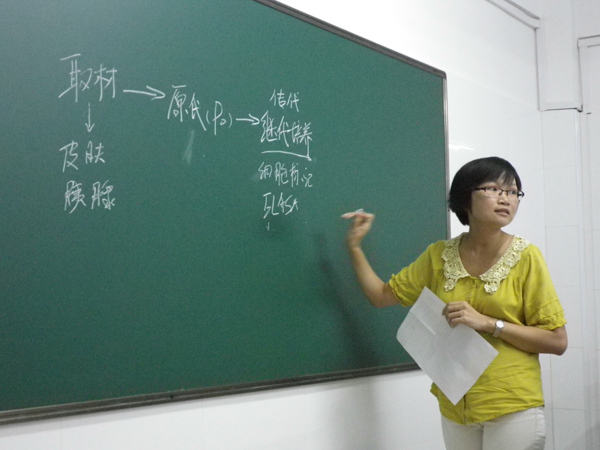 取材 → 原代(P0) → 传代
继代培养
细胞标记
ELISA
↓
皮肤
胰腺